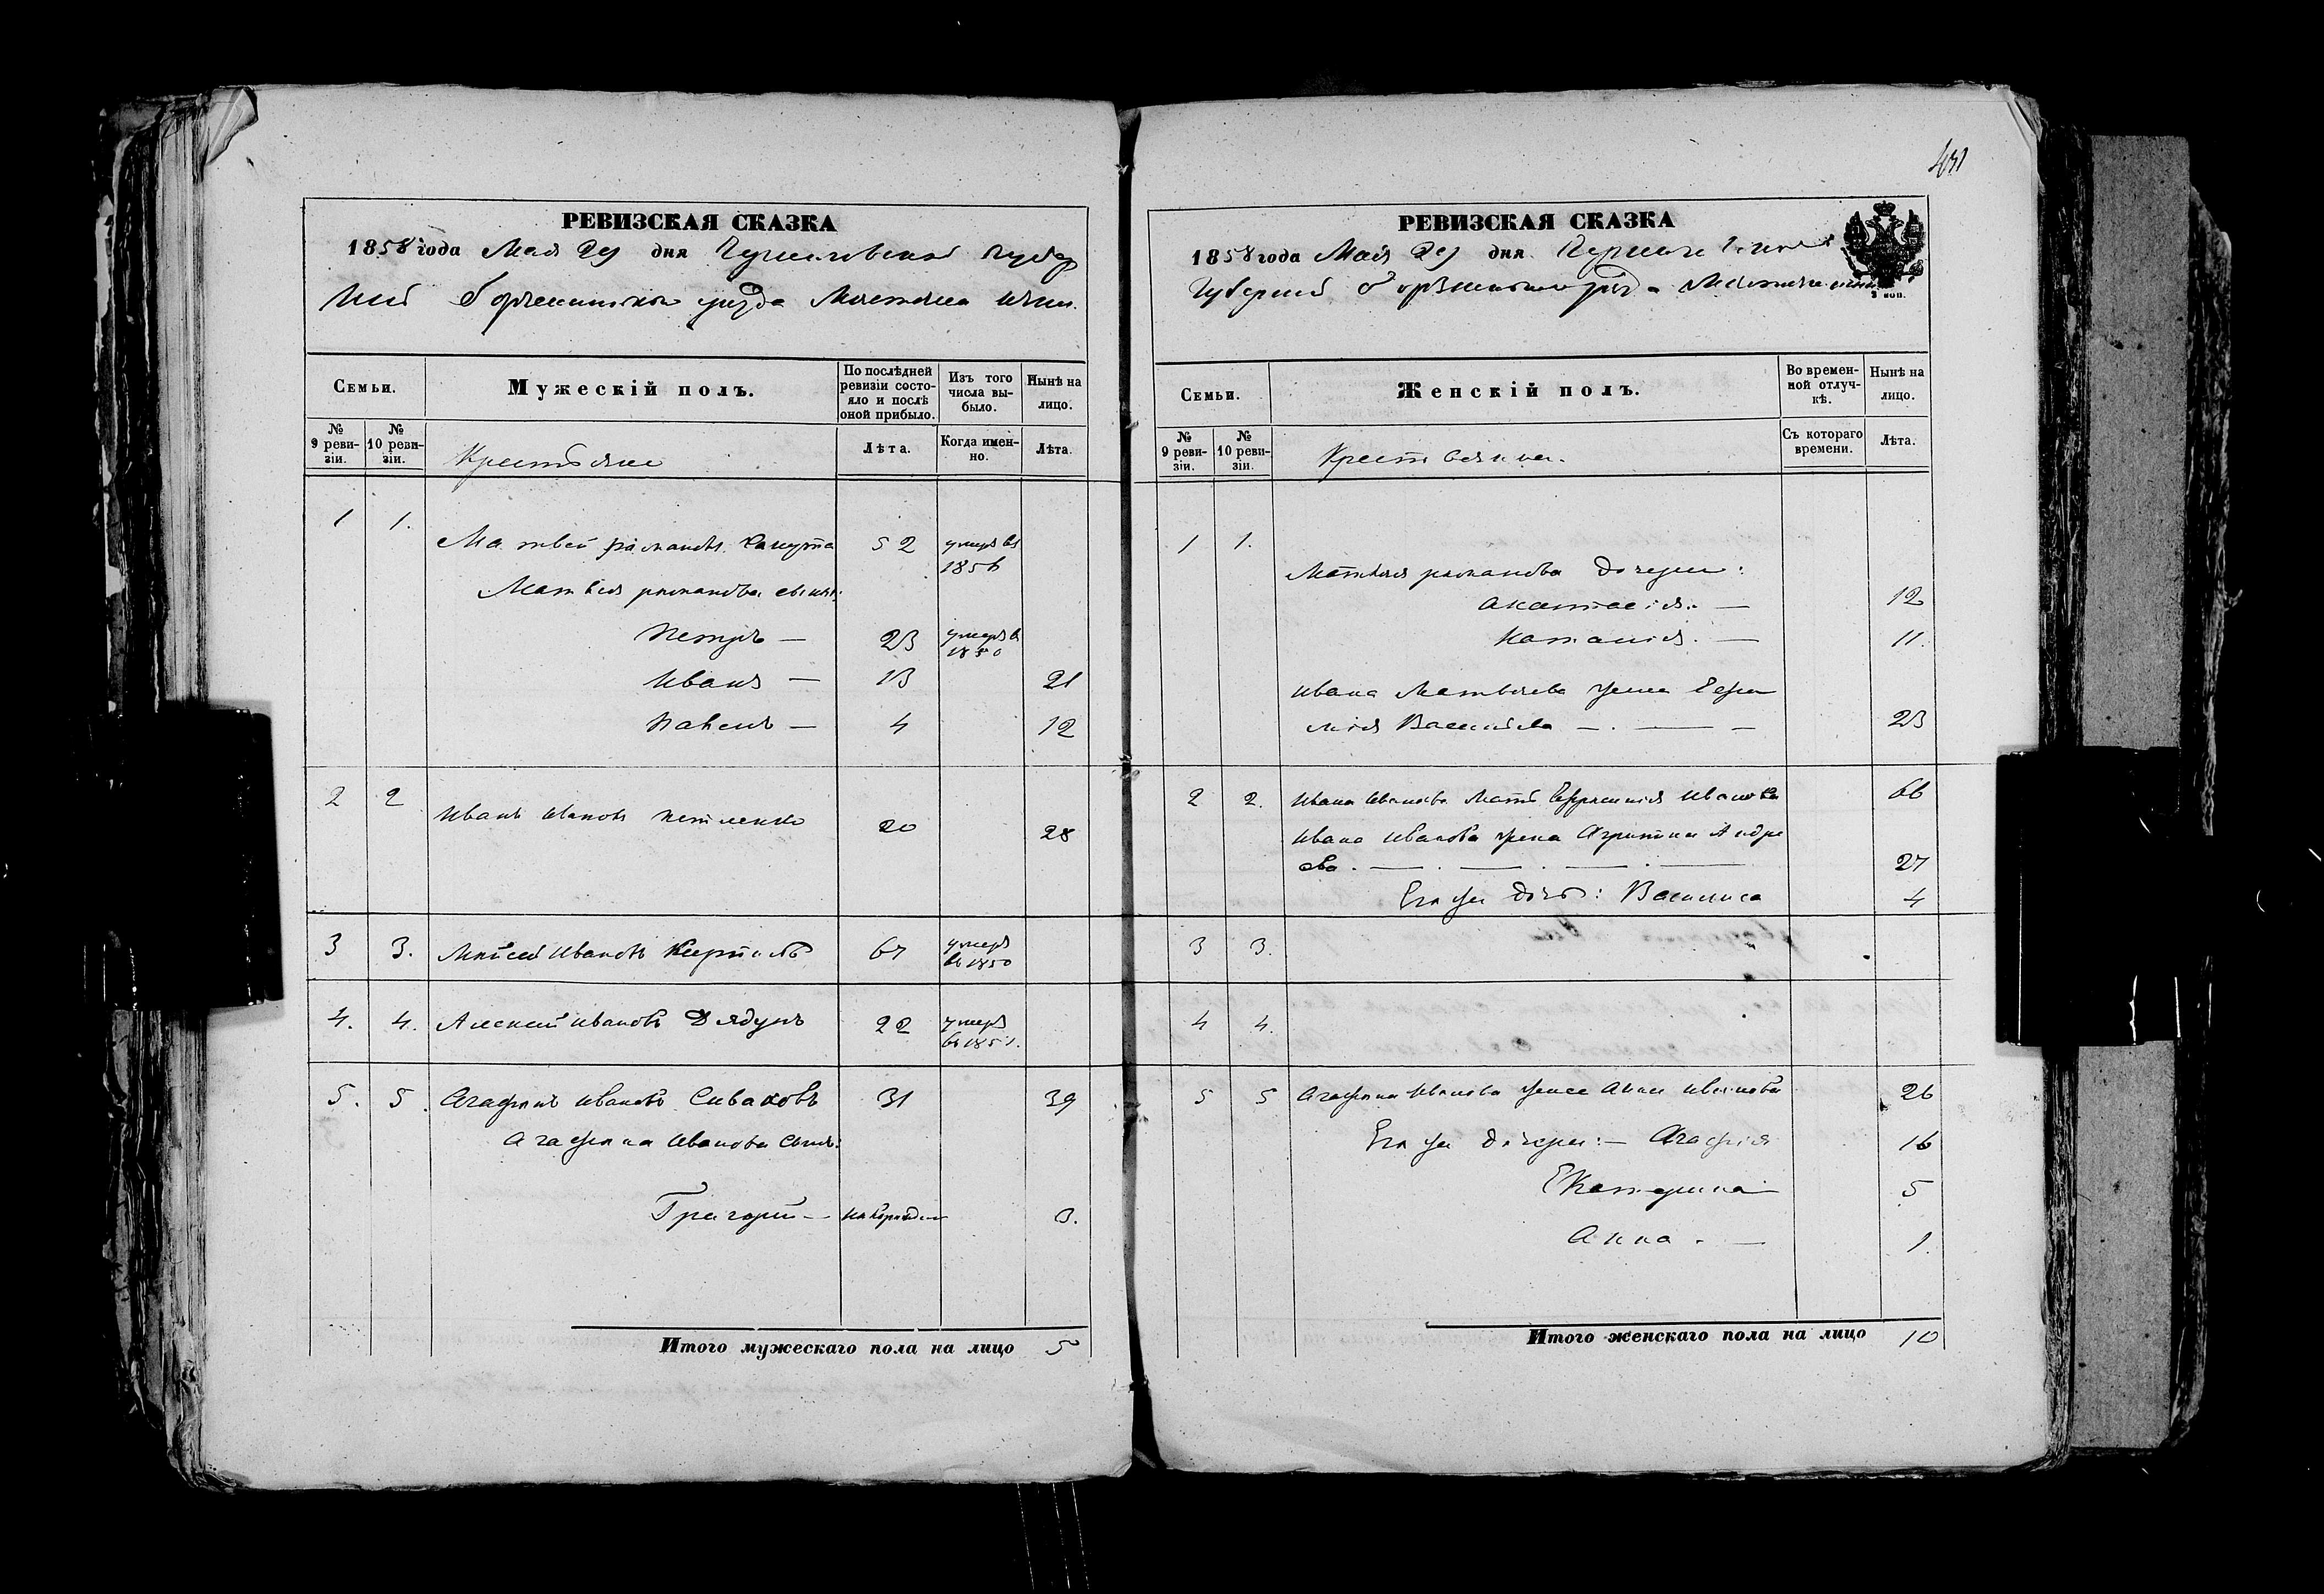 431
РЕВИЗСКАЯ СКАЗКА
1858 года Мая 29 дня Черниговской губер
ніи уезда Местечка
Семьи.
Мужескій полъ.
По послѣдней ревизіи состояло и послѣ оной прибыло.
Изъ того числа выбыло.
Нынѣ на лицо.
№ 9 ревизіи.
№ 10 ревизіи.
Крестьяне
Лѣта.
Когда именно.
Лѣта.
1 1. Матвей Романовъ 52 умеръ въ 1856
Матвея Романова сыновья:
Петръ — 23 умеръ в 1850
Иванъ — 13 21
Павелъ — 4 12
2 2 Иванъ Ивановъ Петленко 20 28
3 3. Ивановъ 67 умеръ въ 1850
4. 4. Алексей Ивановъ Дядунъ 22 умеръ въ 1851.
5. 5. Агафонъ Ивановъ Сиваковъ 31 39
Агафона Иванова сынъ:
Григорий — новорожден 3.
Итого мужескаго пола на лицо 5
РЕВИЗСКАЯ СКАЗКА
1858 года Мая 29 дня
Губерніи
Семьи.
Женскій полъ.
Во временной отлучкѣ.
Нынѣ на лицо.
№ 9 ревизіи.
№ 10 ревизіи.
Крестьянки.
Съ котораго времени.
Лѣта.
1 1.
Матвея Романова дочери:
Анастасія. — 12
Наталія. — 11.
Ивана Матвеева жена
Васильева — . — — 23
2 2. Ивана Иванова мать Ефросинія Иванова 66
Ивана Иванова жена Агрипина Андре
ева . — . — . — . — 27
Его же дочь: Василиса 4
3 3.
4 4.
5 5 Агафона Иванова жена Анна Иванова 26
Его же дочери: — Агафія 16
Екатерина 5
Анна . — 1.
Итого женскаго пола на лицо 10